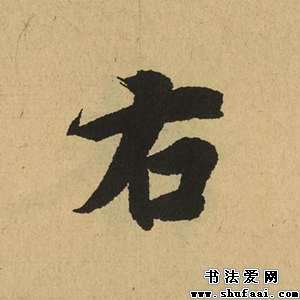 右
书法爱网
www.shufaai.com